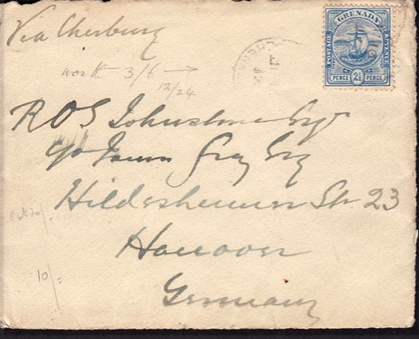 Via Cherburg
GRENADA
POSTAGE
REVENUE
PENCE 2½ PENCE
worth 3/6 →
12/24
R O S Johnstone Esqr
c/o James Gray Esq
Hildesheimer Str. 23
Hannover
10/=
Germany